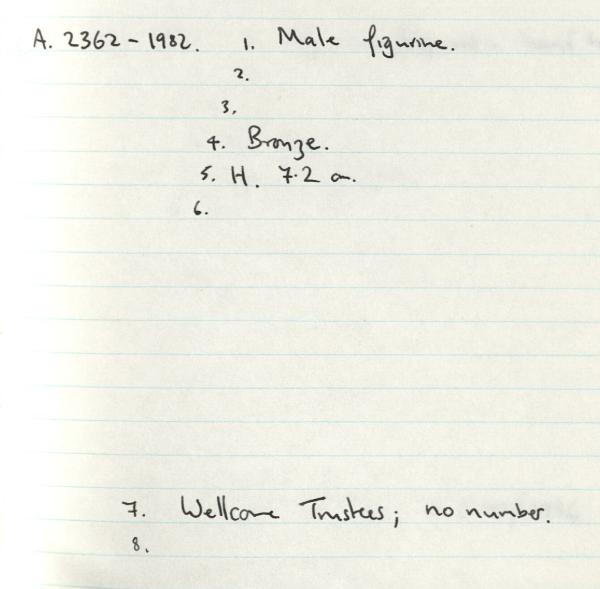 A. 2362 - 1982. 1. Male figurine.
2.
3.
4. Bronze.
5. H. 7.2 cm.
6.
7. Wellcome Trustees; no number.
8.